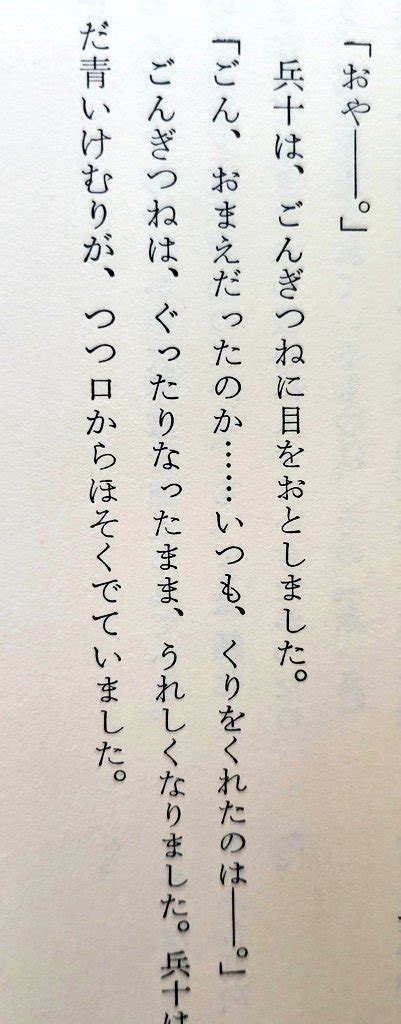 「おや――。」
兵十は、ごんぎつねに目をおとしました。
「ごん、おまえだったのか……いつも、くりをくれたのは――。」
ごんぎつねは、ぐったりなったまま、うれしくなりました。兵十は
だ青いけむりが、つつ口からほそくでていました。